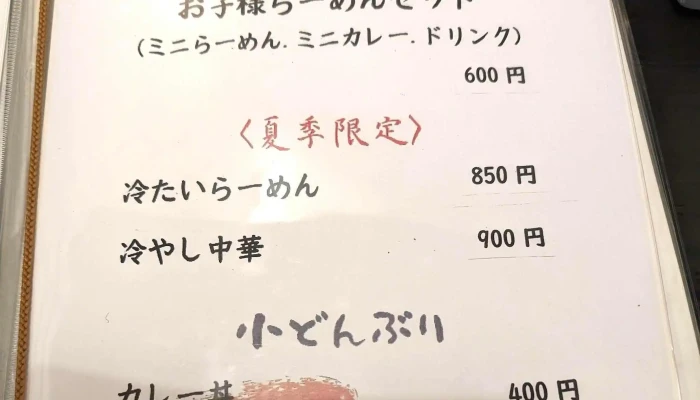 お子様らーめんセット
(ミニらーめん.ミニカレー.ドリンク)
600円
〈夏季限定〉
冷たいらーめん 850円
冷やし中華 900円
小どんぶり
カレー丼 400円